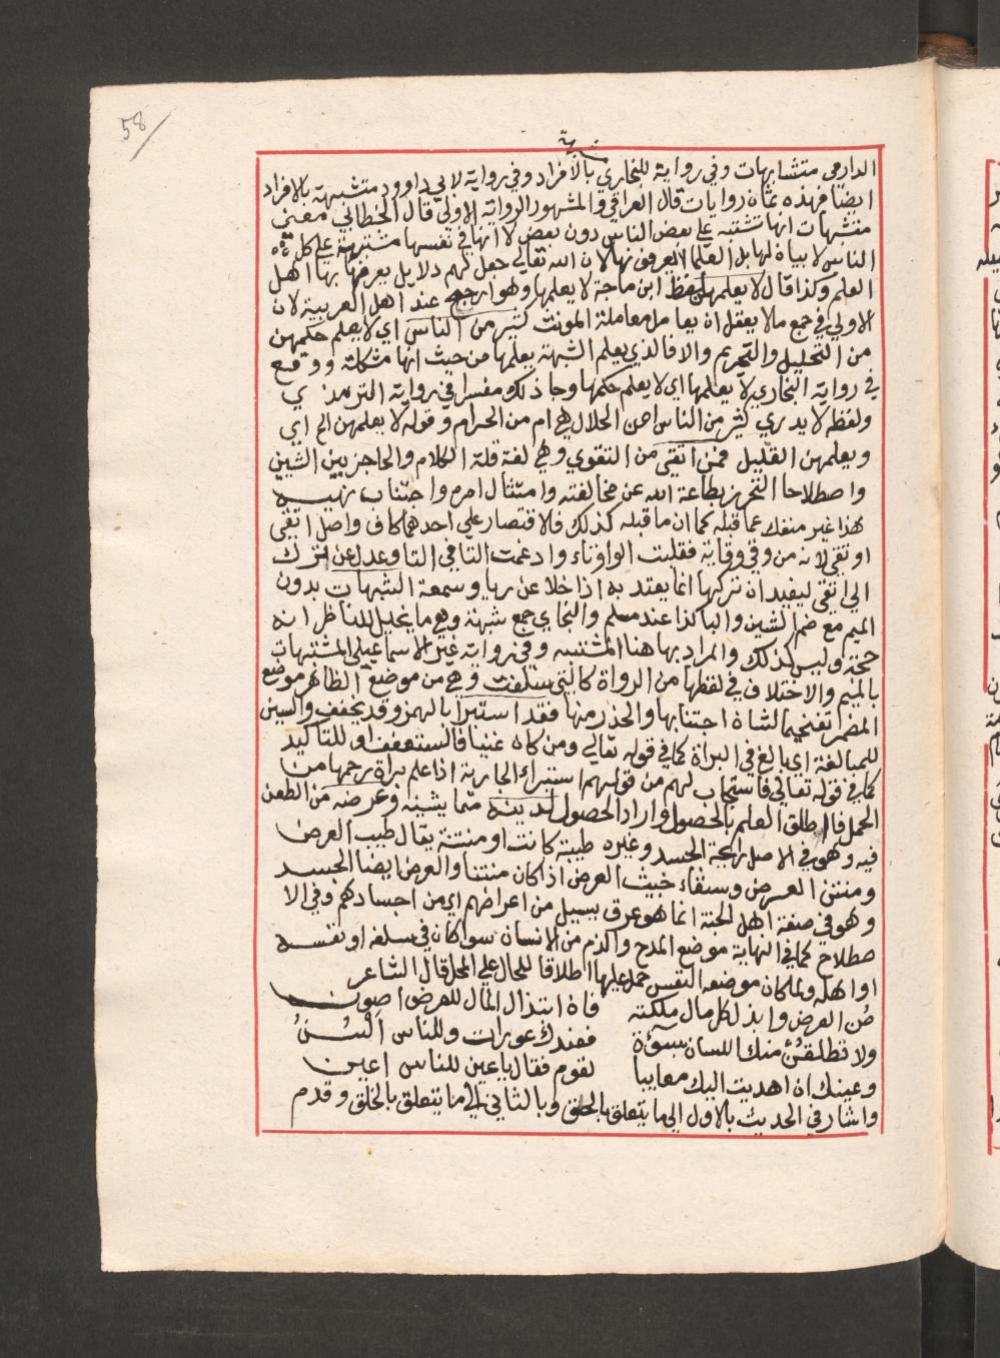 58
مشبهة
الدارمي متشابهات وفي رواية للبخاري بالافراد وفي رواية لابي داوود متشبهة بالافراد
ايضا فهذه ثمان روايات قال العراقي والمشهور الرواية الاولي قال الخطابي معني
متشبهات انها تشتبه علي بعض الناس دون بعض لا انها في نفسها مشتبهة علي كل
الناس لا بيان لها بل العلما يعرفونها لان الله تعالي جعل لهم دلايل يعرفها بها اهل
العلم وكذا قال لا يعلمها ولفظ ابن ماجة لا يعلمها وهو ارجح عند اهل العربية لان
الاولي في جمع ما لا يعقل ان يعامل معاملة المونث كثير من الناس اي لا يعلم حكمهن
من التحليل والتحريم والا فالذي يعلم الشبهة يعلمها من حيث انها مشكلة ووقع
في رواية البخاري لا يعلمها اي لا يعلم حكمها وجا ذلك مفسرا في رواية الترمذي
ولفظه لا يدري كثير من الناس امن الحلال هي ام من الحرام وقوله لا يعلمهن الخ اي
ويعلمهن القليل فمن اتقي من التقوي وهي لغة قلة الكلام والحاجز بين الشيين
واصطلاحا التحرز بطاعة الله عن مخالفته وامتثال امره واجتناب نهيه
هذا غير منفك عما قبله كما ان ما قبله كذلك فلاقتصار علي احدهما كاف واصل اتقي
اوتقي لانه من وقي وقاية فقلبت الواو تاء وادغمت التا في التا وعدل عن ترك
الي اتقي ليفيد ان تركها انما يعتد به اذا خلا عن ريا وسمعة الشبهات بدون
الميم مع ضم الشين والبا كذا عند مسلم والبخاي جمع شبهة وهي ما يخيل للناظر انه
حجة وليس كذلك والمراد بها هنا المشتبه وفي رواية غير الاسماعيلي المشتبهات
بالميم والاختلاف في لفظها من الرواة كالتي سلفت وهي من موضع الظاهر موضع
المضمر تفخيما لشان اجتنابها والحذر منها فقد استبرأ بالهمز وقد يخفف والسين
للمبالغة اي بالغ في البراة كما في قوله تعالي ومن كان غنيا فليستعفف او للتاكيد
كما في قوله تعالي فاستجاب لهم من قولهم استبراء الجارية اذا علم براة رحمها من
الحمل فاطلق العلم بالحصول واراد الحصول لدينه مما يشينه وعرضه من الطعن
فيه وهو في الاصل رايحة الجسد وغيره طيبة كانت او منتنة يقال طيب العرض
ومنتن العرض وسقاء خبيث العرض اذا كان منتنا والعرض ايضا الجسد
وهو في صفة اهل الجنة انما هو عرق يسيل من اعراضهم اي من اجسادهم وفي الا
صطلاح كما في النهاية موضع المدح والذم من الانسان سوا كان في سلفه او نفسه
او اهله ولما كان موضعه النفس حمل عليها اطلاقا للحال علي المحل قال الشاعر
صُن العرض وابذل كل مال ملكته فان ابتذال المال للعرض اصون
ولا تطلقنْ منك اللسان بسؤة فعندك عورات وللناس السُنُ
وعينك ان اهديت اليك معايبا لقوم فقال يا عين للناس اعين
واشار في الحديث بالاول الي ما يتعلق بالحق وبالثاني الي ما يتعلق بالخلق وقدم